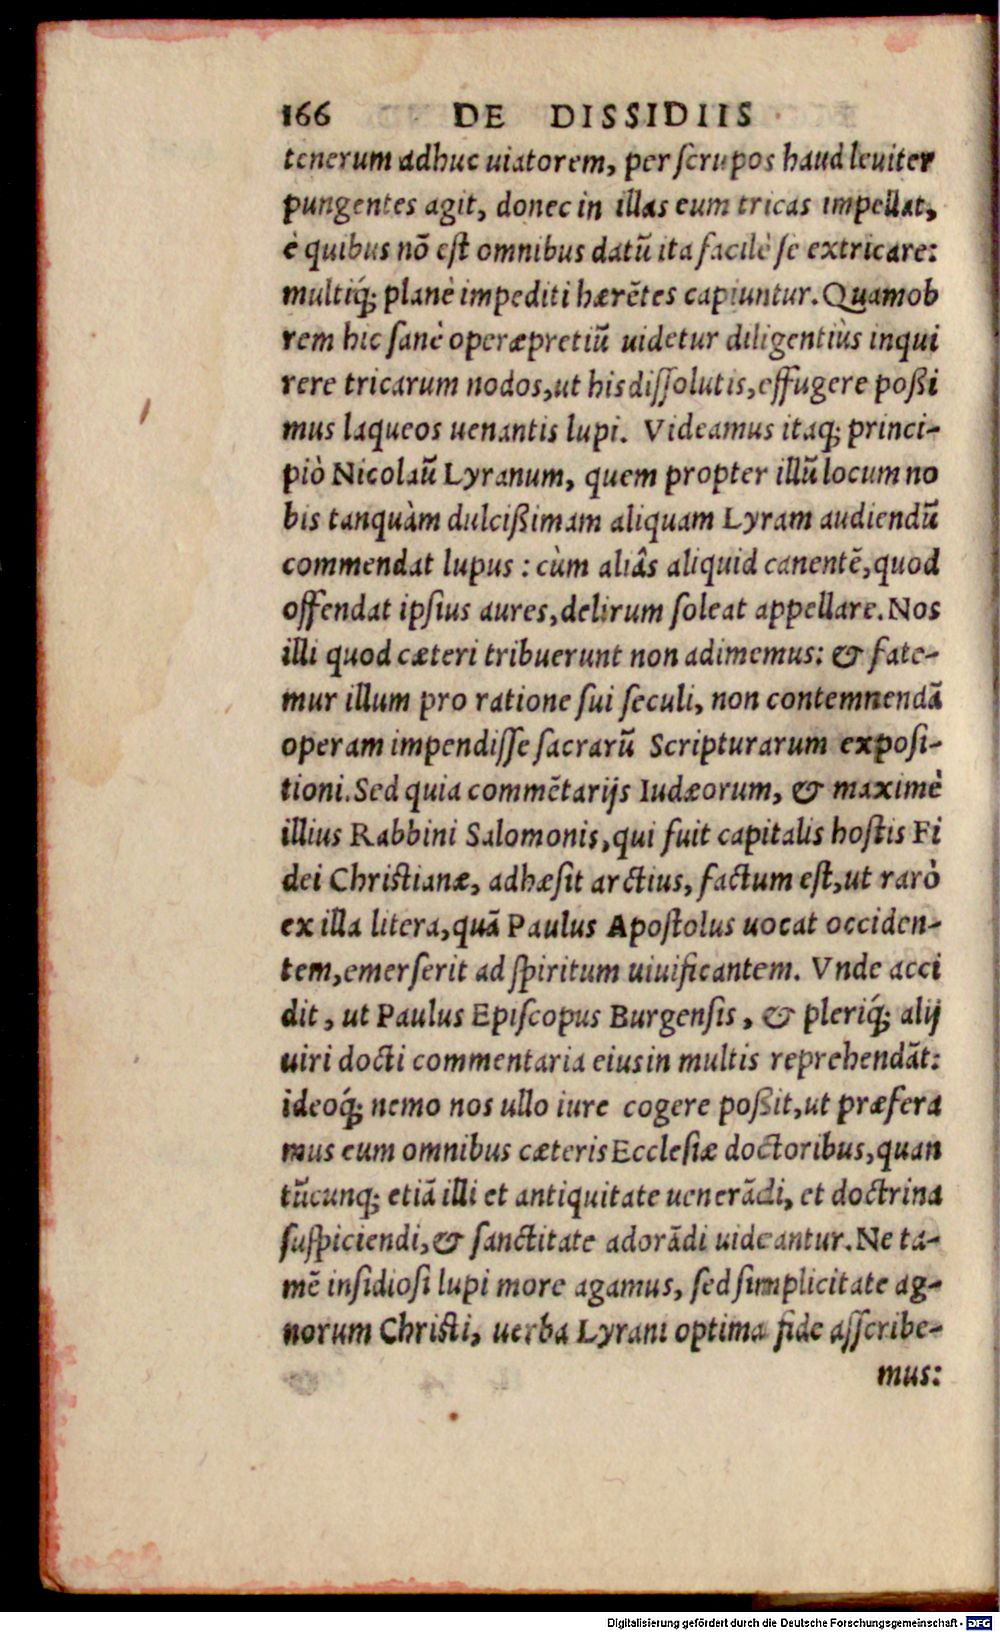 166 DE DISSIDIIS
tenerum adhuc uiatorem, per scrupos haud leuiter
pungentes agit, donec in illas eum tricas impellat,
è quibus nõ est omnibus datũ ita facilè se extricare:
multiq́; planè impediti hærẽtes capiuntur. Quamob
rem hic sanè operæpretiũ uidetur diligentiùs inqui
rere tricarum nodos, ut his dissolutis, effugere poßi
mus laqueos uenantis lupi. Videamus itaq; princi-
piò Nicolaũ Lyranum, quem propter illũ locum no
bis tanquàm dulcißimam aliquam Lyram audiendũ
commendat lupus: cùm aliâs aliquid canentẽ, quod
offendat ipsius aures, delirum soleat appellare. Nos
illi quod cæteri tribuerunt non adimemus: & fate-
mur illum pro ratione sui seculi, non contemnendã
operam impendisse sacrarũ Scripturarum exposi-
tioni. Sed quia commẽtarijs Iudæorum, & maximè
illius Rabbini Salomonis, qui fuit capitalis hostis Fi
dei Christianæ, adhæsit arctius, factum est, ut rarò
ex illa litera, quã Paulus Apostolus uocat occiden-
tem, emerserit ad spiritum uiuificantem. Vnde acci
dit, ut Paulus Episcopus Burgensis, & pleriq́; alij
uiri docti commentaria eius in multis reprehendãt:
ideoq́; nemo nos ullo iure cogere poßit, ut præfera
mus eum omnibus cæteris Ecclesiæ doctoribus, quan
tũcunq; etiã illi et antiquitate uenerãdi, et doctrina
suspiciendi, & sanctitate adorãdi uideantur. Ne ta-
mẽ insidiosi lupi more agamus, sed simplicitate ag-
norum Christi, uerba Lyrani optima fide asscribe-
mus:
Digitalisierung gefördert durch die Deutsche Forschungsgemeinschaft - DFG